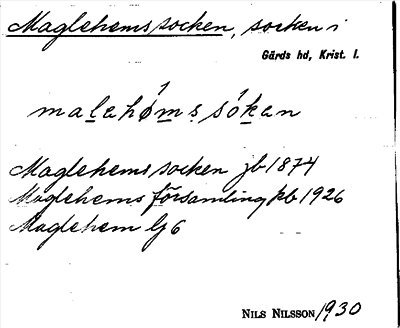 Maglehems socken, socken i
Gärds hd, Krist. l.
malehøms sókan
Maglehems socken jb 1874
Maglehems församling kb 1926
Maglehem lj 6
NILS NILSSON 1930